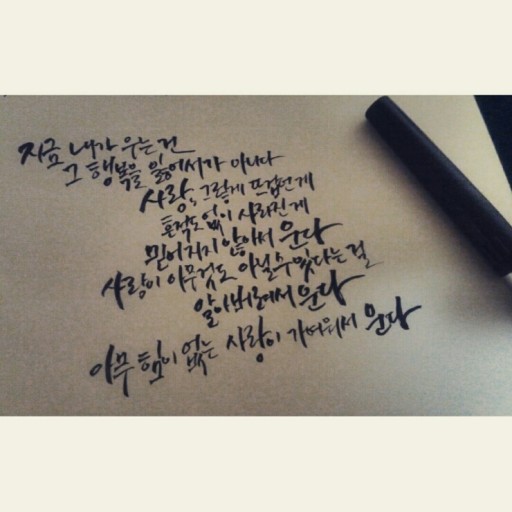 지금 내가 우는 건
그 행복을 잃어서가 아니다
사랑, 그렇게 뜨겁던 게
흔적도 없이 사라진 게
믿어지지 않아서 운다
사랑이 아무것도 아닐 수 있다는 걸
알아버려서 운다
아무 힘이 없는 사랑이 가여워서 운다